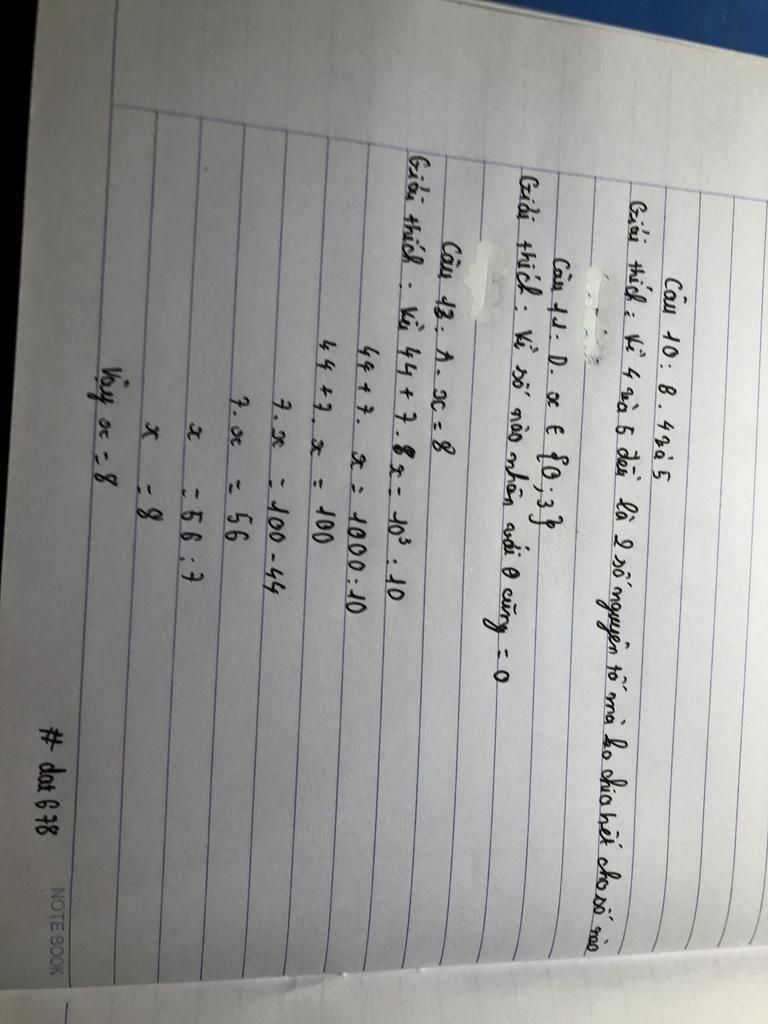 Câu 10: B. 4 và 5
Giải thích: Vì 4 và 5 đều là 2 số nguyên tố mà ko chia hết cho số nào
Câu 11: D. x ∈ {0; 3}
Giải thích: Vì số nào nhân với 0 cũng = 0
Câu 13: A. x = 8
Giải thích: Vì 44 + 7.8x = 10³ : 10
44 + 7. x = 1000 : 10
44 + 7. x = 100
7. x = 100 - 44
7. x = 56
x = 56 : 7
x = 8
Vậy x = 8
# dat 678
NOTE BOOK